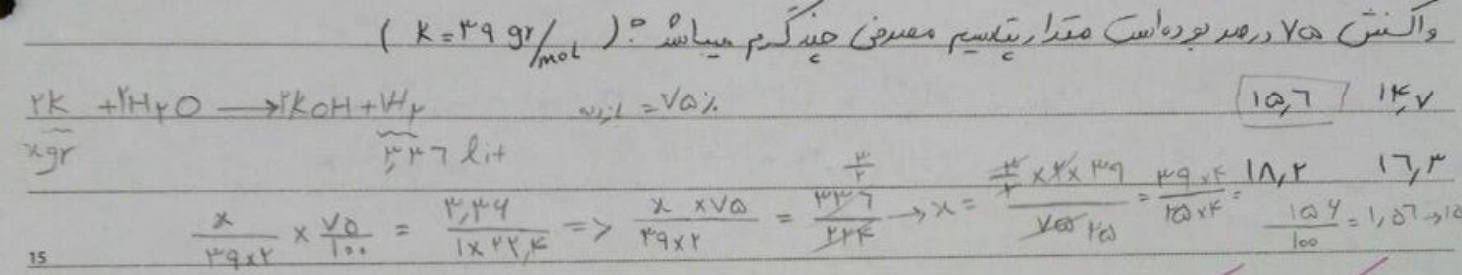 واکنش ۷۵ درصد بوده است مقدار پتاسیم مصرفی چند گرم میباشد؟ ( K=۳۹ gr/mol )
۲K + ۲H۲O ⟶ ۲KOH + ۱H۲ بازده = ۷۵٪ ۱۵,۶ ۱۴,۷
x gr ۳,۳۶ lit ۱۸,۲ ۱۶,۳
x/۳۹×۲ × ۷۵/۱۰۰ = ۳,۳۶/۱×۲۲,۴ => x×۷۵/۳۹×۲ = ۳۳۶/۲۲۴ ۳/۲ → x = ۳/۲×۲×۳۹/۷۵ ۲۵ = ۳۹×۴/۲۵×۴ = ۱۵۶/۱۰۰ = ۱,۵۶ →
15